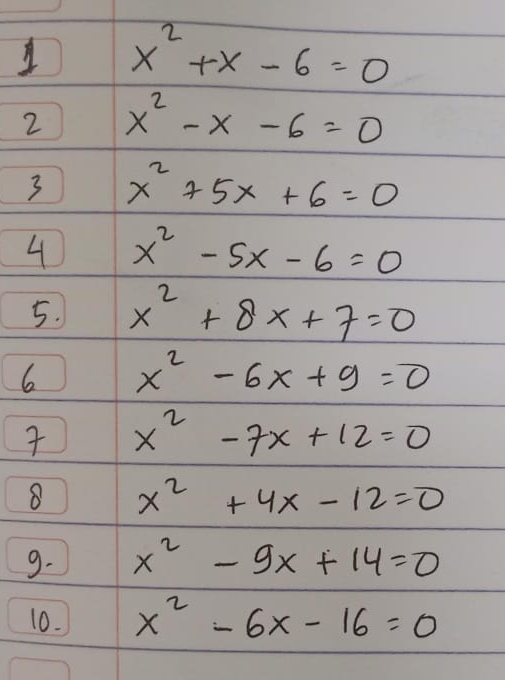 1 x² + x - 6 = 0
2 x² - x - 6 = 0
3 x² + 5x + 6 = 0
4 x² - 5x - 6 = 0
5. x² + 8x + 7 = 0
6 x² - 6x + 9 = 0
7 x² - 7x + 12 = 0
8 x² + 4x - 12 = 0
9. x² - 9x + 14 = 0
10. x² - 6x - 16 = 0